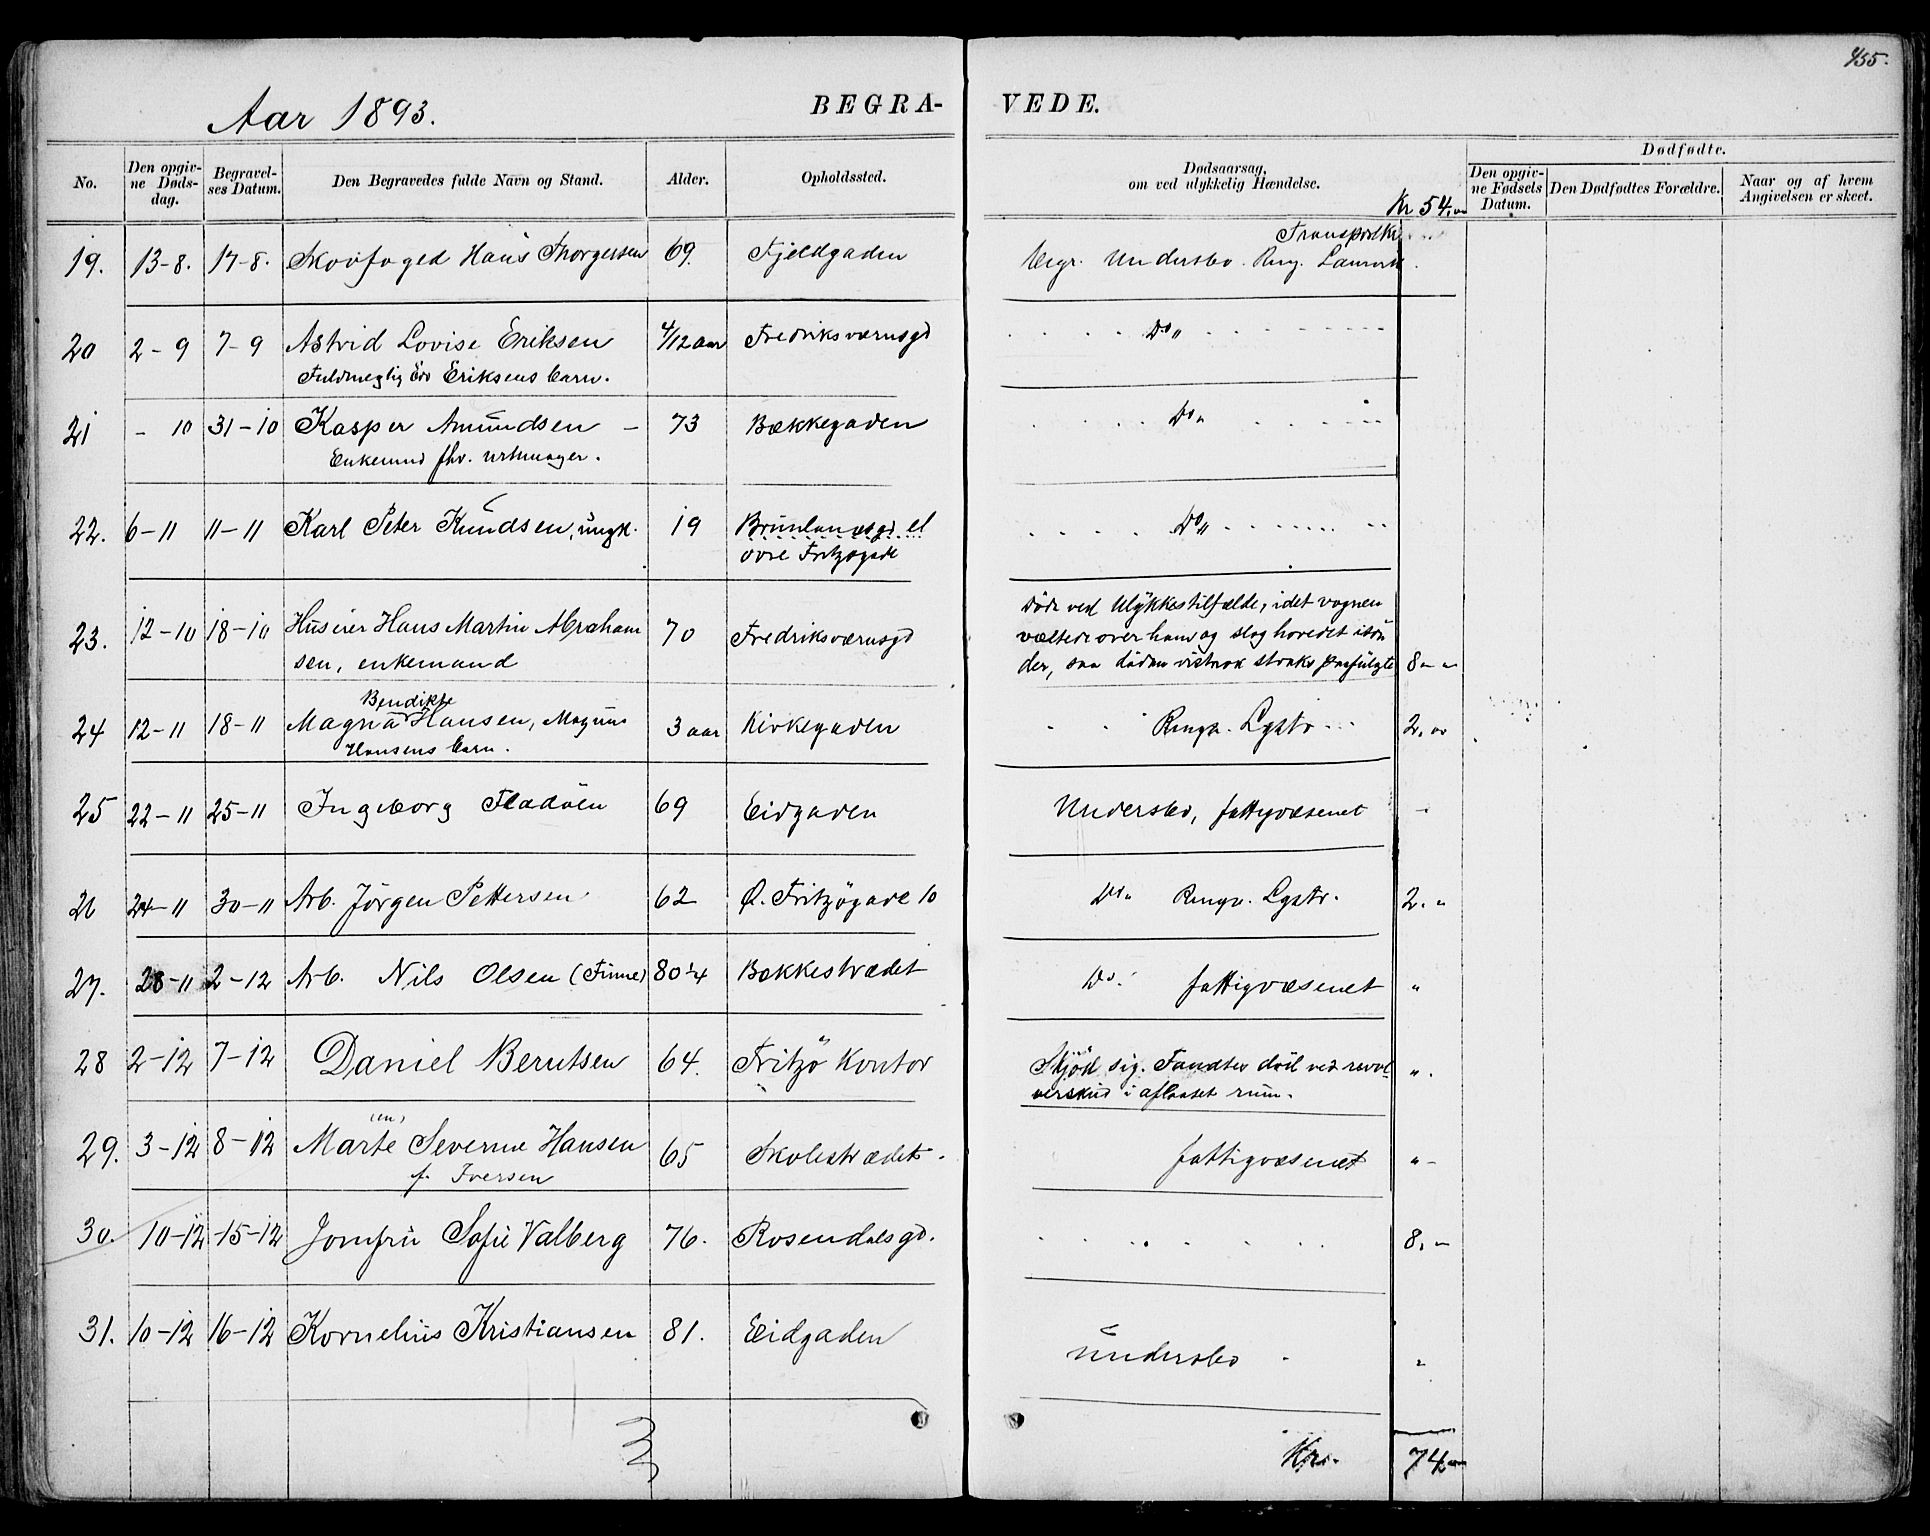 455.
Aar 1893.
BEGRA-
VEDE.
No.
Den opgiv-
ne Døds-
dag.
Begravel-
ses Datum.
Den Begravedes fulde Navn og Stand.
Alder.
Opholdssted.
Dødsaarsag,
om ved ulykkelig Hændelse.
Dødfødte.
Den opgiv-
ne Fødsels
Datum.
Den Dødfødtes Forældre.
Naar og af hvem
Angivelsen er skeet.
Kr 54,00
Transport Kr
19. 13-8. 17-8. Skovfoged Hans Thorgersen 69. Fjeldgaden Begr. Undersbo. Ring. Laurvik
20 2-9 7-9 Astrid Lovise Eriksen 4/12 aar Fredriksværnsgd Do „
Fuldmegtig Edv Eriksens barn.
21 - 10 31-10 Kasper Amundsen - 73 Bækkegaden Do „
Enkemand fhv. urtmager.
22. 6-11 11-11 Karl Peter Knudsen, ungk. 19 Brunlanesgd. el Do „
øvre Fritzøgade
23. 12-10 18-10 Huseier Hans Martin Abraham 70 Fredriksværnsgd
sen, enkemand
Døde ved Ulykkestilfælde, idet vognen
væltede over ham og slog hovedet itøn
der, saa døden straks paafulgte 8 „ „
24 12-11 18-11 Magna Bendikte Hansen, Magnus 3 aar Kirkegaden Ringn. Lgstr. 2,00
Hansens barn.
25 22-11 25-11 Ingeborg Fladøen 69 Eidgaden Undersbo, fattigvæsenet -
26 24-11 30-11 Arb. Jörgen Pettersen 62 Ø. Fritzøgade 10 Do „ Ringn. Lgstr. 2. „
27. 28-11 2-12 Arb. Nils Olsen (Finne) 80 1/4 Bakkestrædet Do. fattigvæsenet „
28 2-12 7-12 Daniel Berntsen 64. Fritzö Kontor
Skjöd sig. Fandtes död ved revol- „ .
verskud i aflaaset rum.
29. 3-12 8-12 Marte (en) Severine Hansen 65 Skolestrædet. fattigvæsenet „ -
f. Iversen
30. 10-12 15-12 Jomfru Sofie Valberg 76. Rosendalsgd. 8. „
31. 10-12 16-12 Kornelius Kristiansen 81. Eidgaden Undersbo „
Kr. 74,00